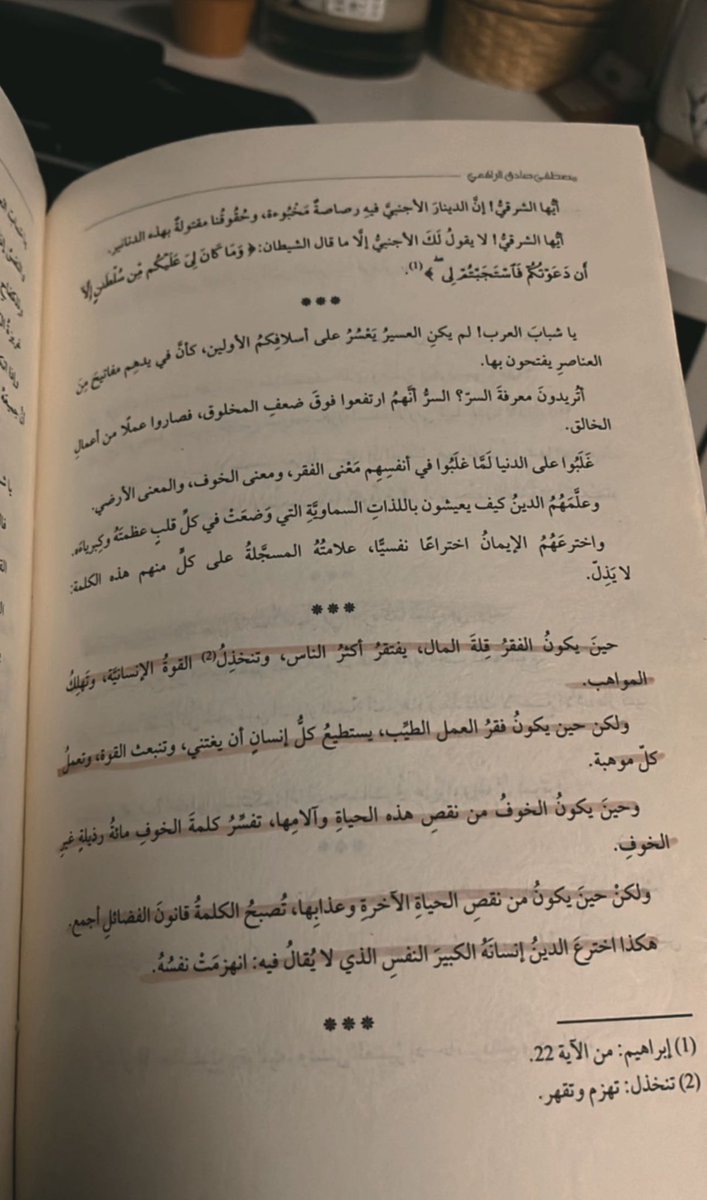 مصطفى صادق الرافعي
أيُّها الشرقيُّ! إنَّ الدينارَ الأجنبيَّ فيهِ رصاصةٌ مَخْبُوءة، وحُقُوقُنا مقتولةٌ بهذه الدنانير.
أيُّها الشرقيُّ! لا يقولُ لكَ الأجنبيُّ إلَّا ما قال الشيطان: ﴿ وَمَا كَانَ لِىَ عَلَيْكُم مِّن سُلْطَٰنٍ إِلَّآ
أَن دَعَوْتُكُمْ فَٱسْتَجَبْتُمْ لِى ۖ ﴾(1).
***
يا شبابَ العرب! لم يكنِ العسيرُ يَعْسُرُ على أسلافِكمُ الأولين، كأنَّ في يدِهِم مفاتيحَ مِنَ
العناصرِ يفتحون بها.
أتُريدونَ معرفةَ السرّ؟ السرُّ أنَّهمُ ارتفعوا فوقَ ضعفِ المخلوق، فصاروا عملًا من أعمالِ
الخالق.
غَلَبُوا على الدنيا لَمَّا غلَبُوا في أنفسِهِم مَعْنى الفقر، ومعنى الخوف، والمعنى الأرضي.
وعلَّمَهُمُ الدينُ كيف يعيشون باللذاتِ السماويَّةِ التي وَضعَتْ في كلِّ قلبٍ عظمتَهُ وكِبرياءَه.
واخترعَهُمُ الإيمانُ اختراعًا نفسيًّا، علامتُهُ المسجَّلةُ على كلٍّ منهم هذه الكلمة:
لا يَذِلّ.
***
حينَ يكونُ الفقرُ قِلةَ المال، يفتقرُ أكثرُ الناس، وتنخذِلُ(2) القوةُ الإنسانيَّة، وتَهلِكُ
المواهب.
ولكن حين يكونُ فقرُ العمل الطيِّب، يستطيعُ كلُّ إنسانٍ أن يغتني، وتنبعث القوة، وتعملُ
كلّ موهبة.
وحينَ يكونُ الخوفُ من نقصِ هذه الحياةِ وآلامِها، تفسِّرُ كلمةَ الخوفِ مائةُ رذيلةٍ غيرِ
الخوفِ.
ولكنْ حينَ يكونُ من نقصِ الحياةِ الآخرةِ وعذابِها، تُصبحُ الكلمةُ قانونَ الفضائلِ أجمع.
هكذا اخترعَ الدينُ إنسانَهُ الكبيرَ النفسِ الذي لا يُقالُ فيه: انهزمَتْ نفسُهُ.
***
(1) إبراهيم: من الآية 22.
(2) تنخذل: تهزم وتقهر.